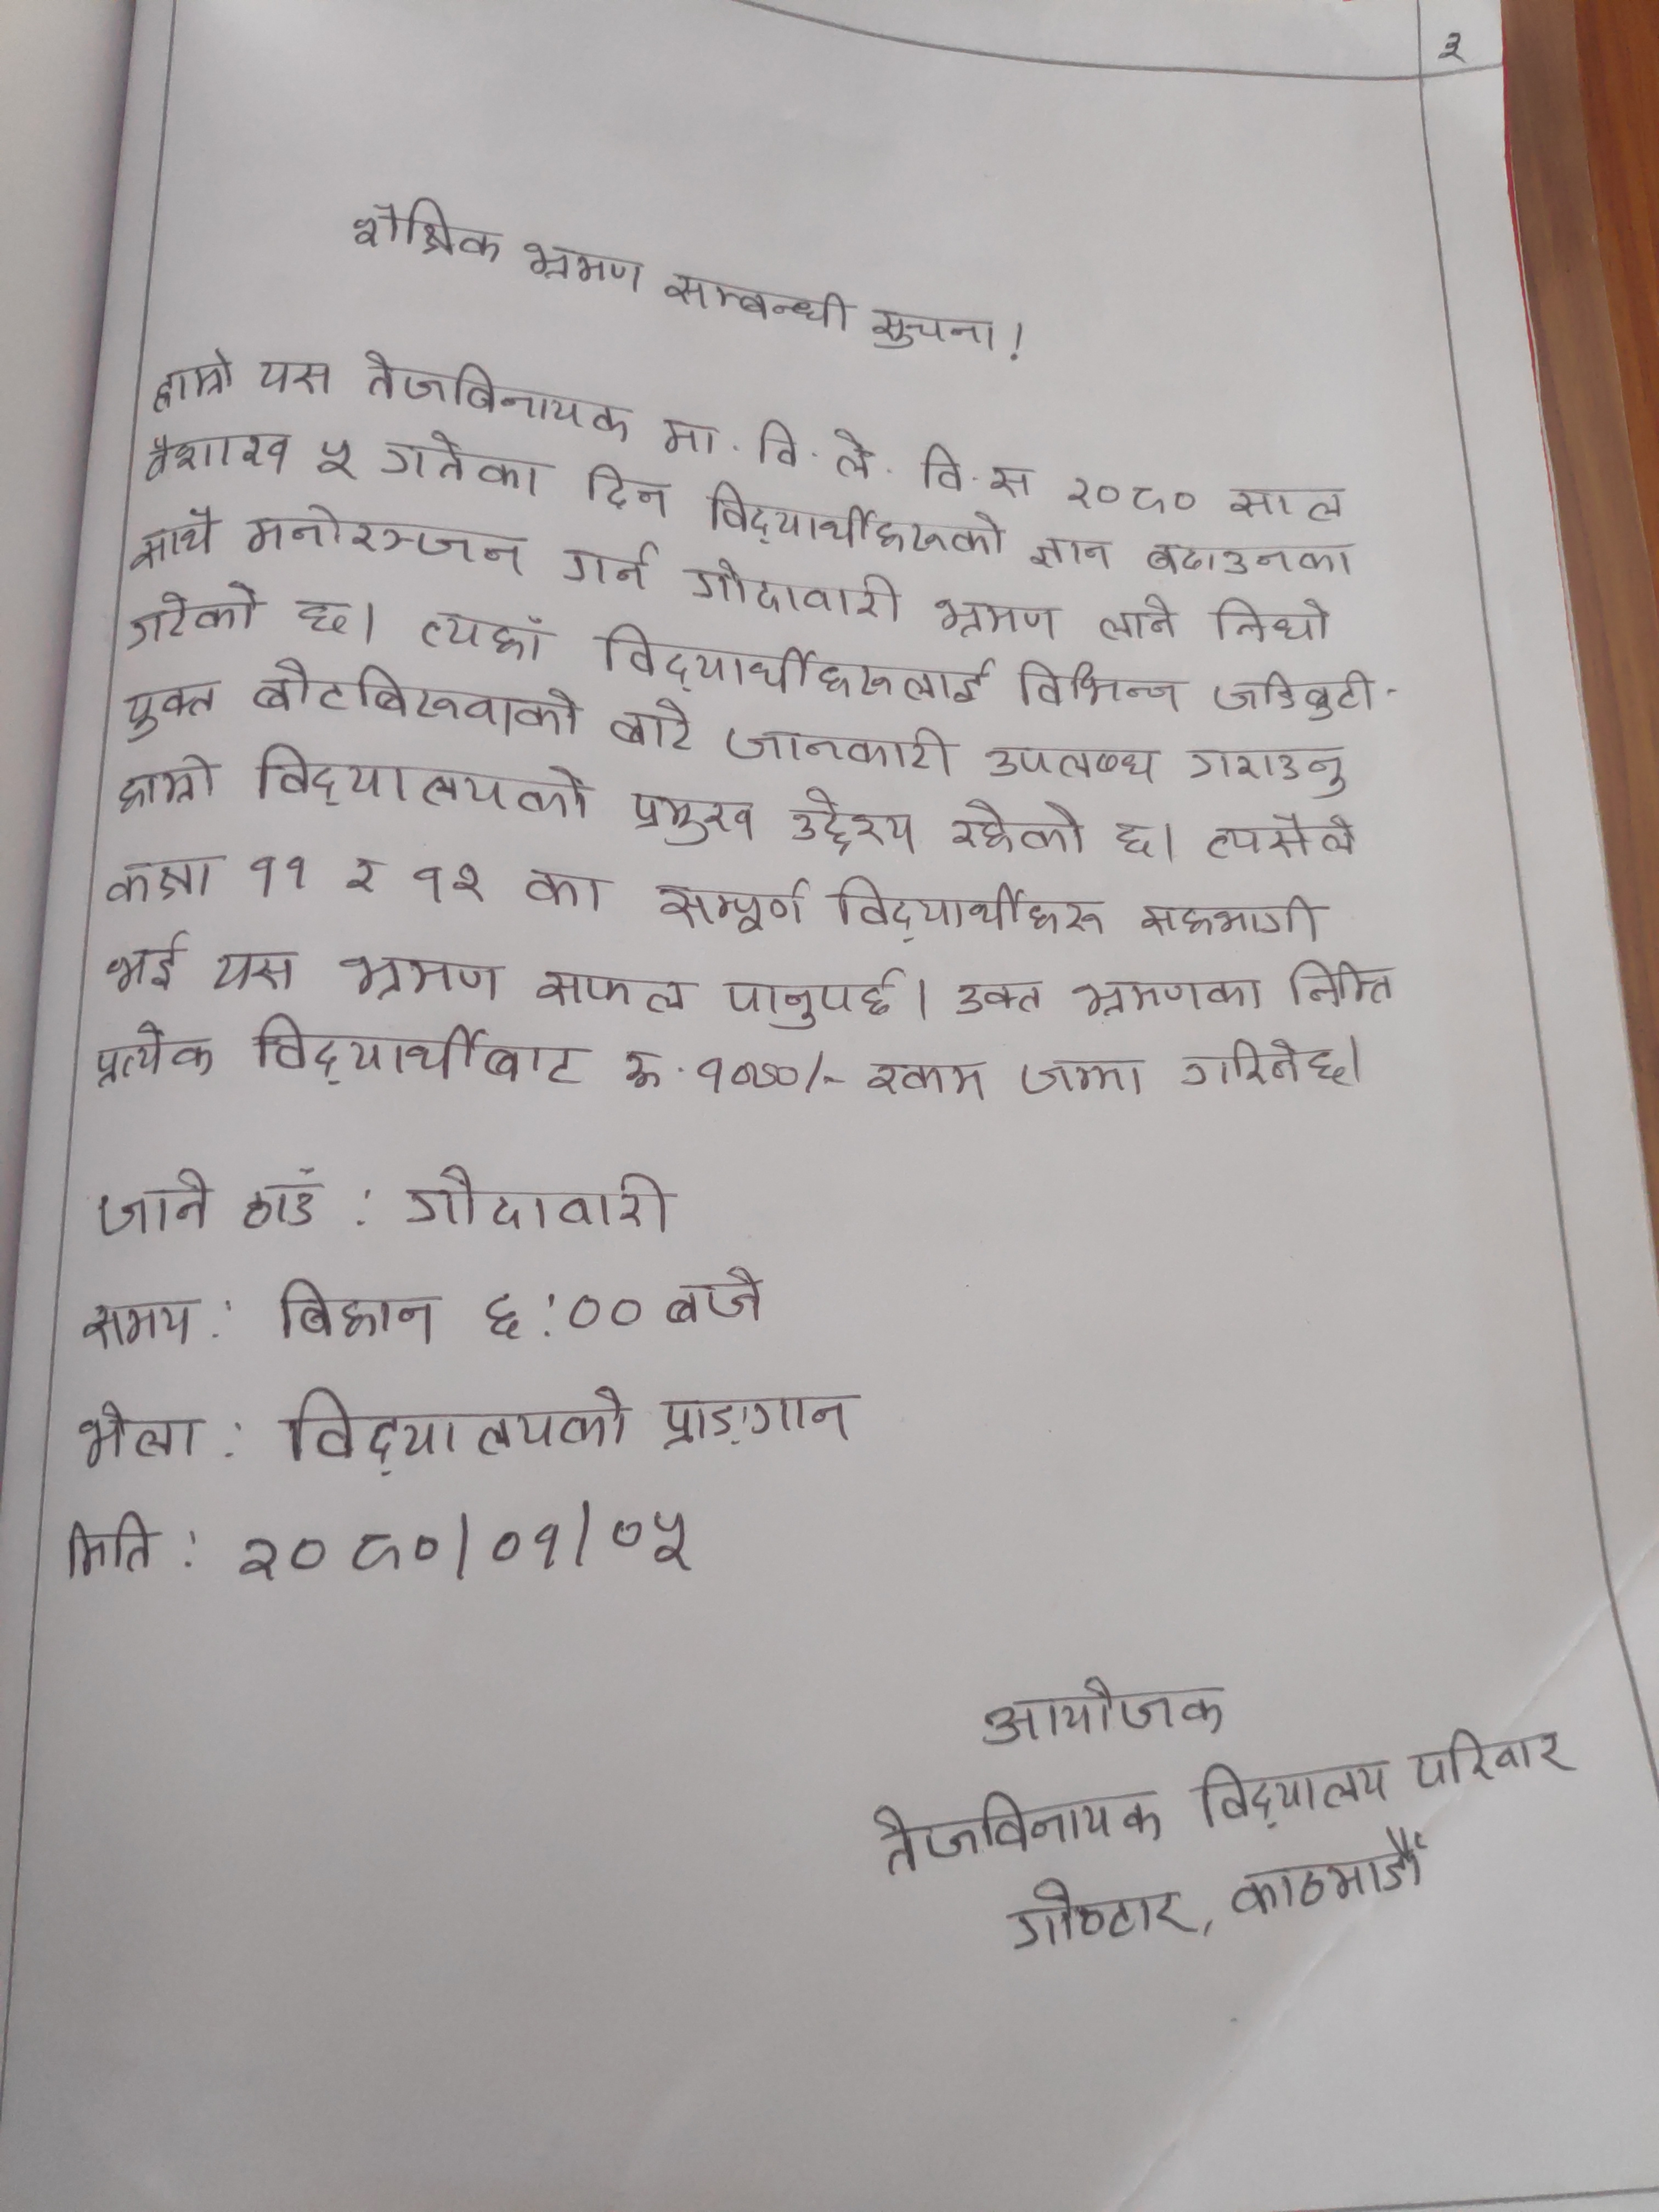 ३
शैक्षिक भ्रमण सम्बन्धी सुचना!
हाम्रो यस तेजबिनायक मा. वि. ले. वि.स २०८० साल
बैशाख ५ गतेका दिन विद्‌यार्थीहरूको ज्ञान बढाउनका
साथै मनोरञ्जन गर्न गोदावारी भ्रमण लाने निधो
गरेको छ। त्यहाँ विद्‌यार्थीहरूलाई विभिन्न जडिबुटी-
युक्त बोटबिरूवाको बारे जानकारी उपलब्ध गराउनु
हाम्रो विद्‌यालयको प्रमुख उद्देश्य रहेको छ। त्यसैले
कक्षा ११ र १२ का सम्पूर्ण विद्‌यार्थीहरू सहभागी
भई यस भ्रमण सफल पानुपर्छ। उक्त भ्रमणका निम्ति
प्रत्येक विद्‌यार्थीबाट रू. १०००/- रकम जम्मा गरिनेछ।
जाने ठाउँ : गोदावारी
समय: बिहान ६:०० बजे
भेला: विद्‌यालयको प्राङ्गान
मिति: २०८०/०१/०५
आयोजक
तेजविनायक विद्‌यालय परिवार
गोठाटार, काठमाडौँ